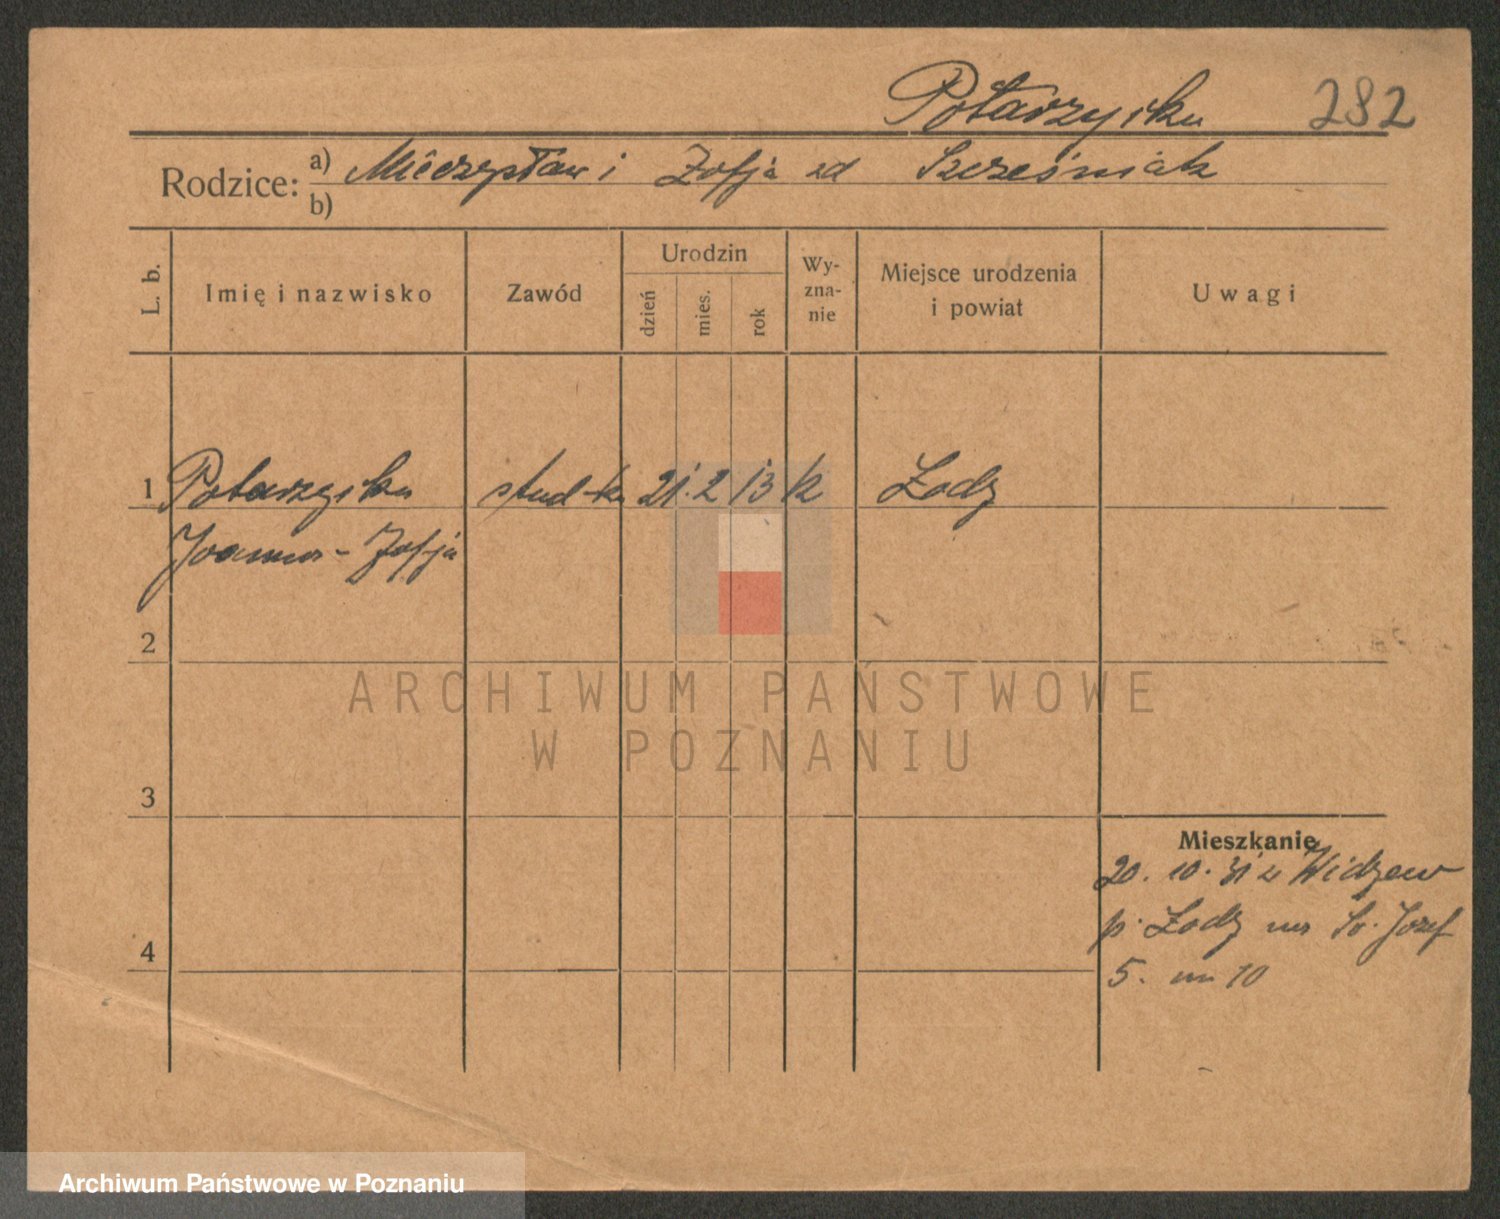 Potarzycka 282
Rodzice: a) Mieczysław i Zofja zd Szcześniak
b)
L. b. Imię i nazwisko Zawód Urodzin dzień mies. rok Wy-zna-nie Miejsce urodzenia i powiat Uwagi
1 Potarzycka stud-ka 21. 2 13 k Łodz
Joanna - Zofja
2
ARCHIWUM PAŃSTWOWE
W POZNANIU
3
Mieszkanie
20. 10. 31 z Widzew
p. Łodz Św. Józef
4
5. m 10
Archiwum Państwowe w Poznaniu